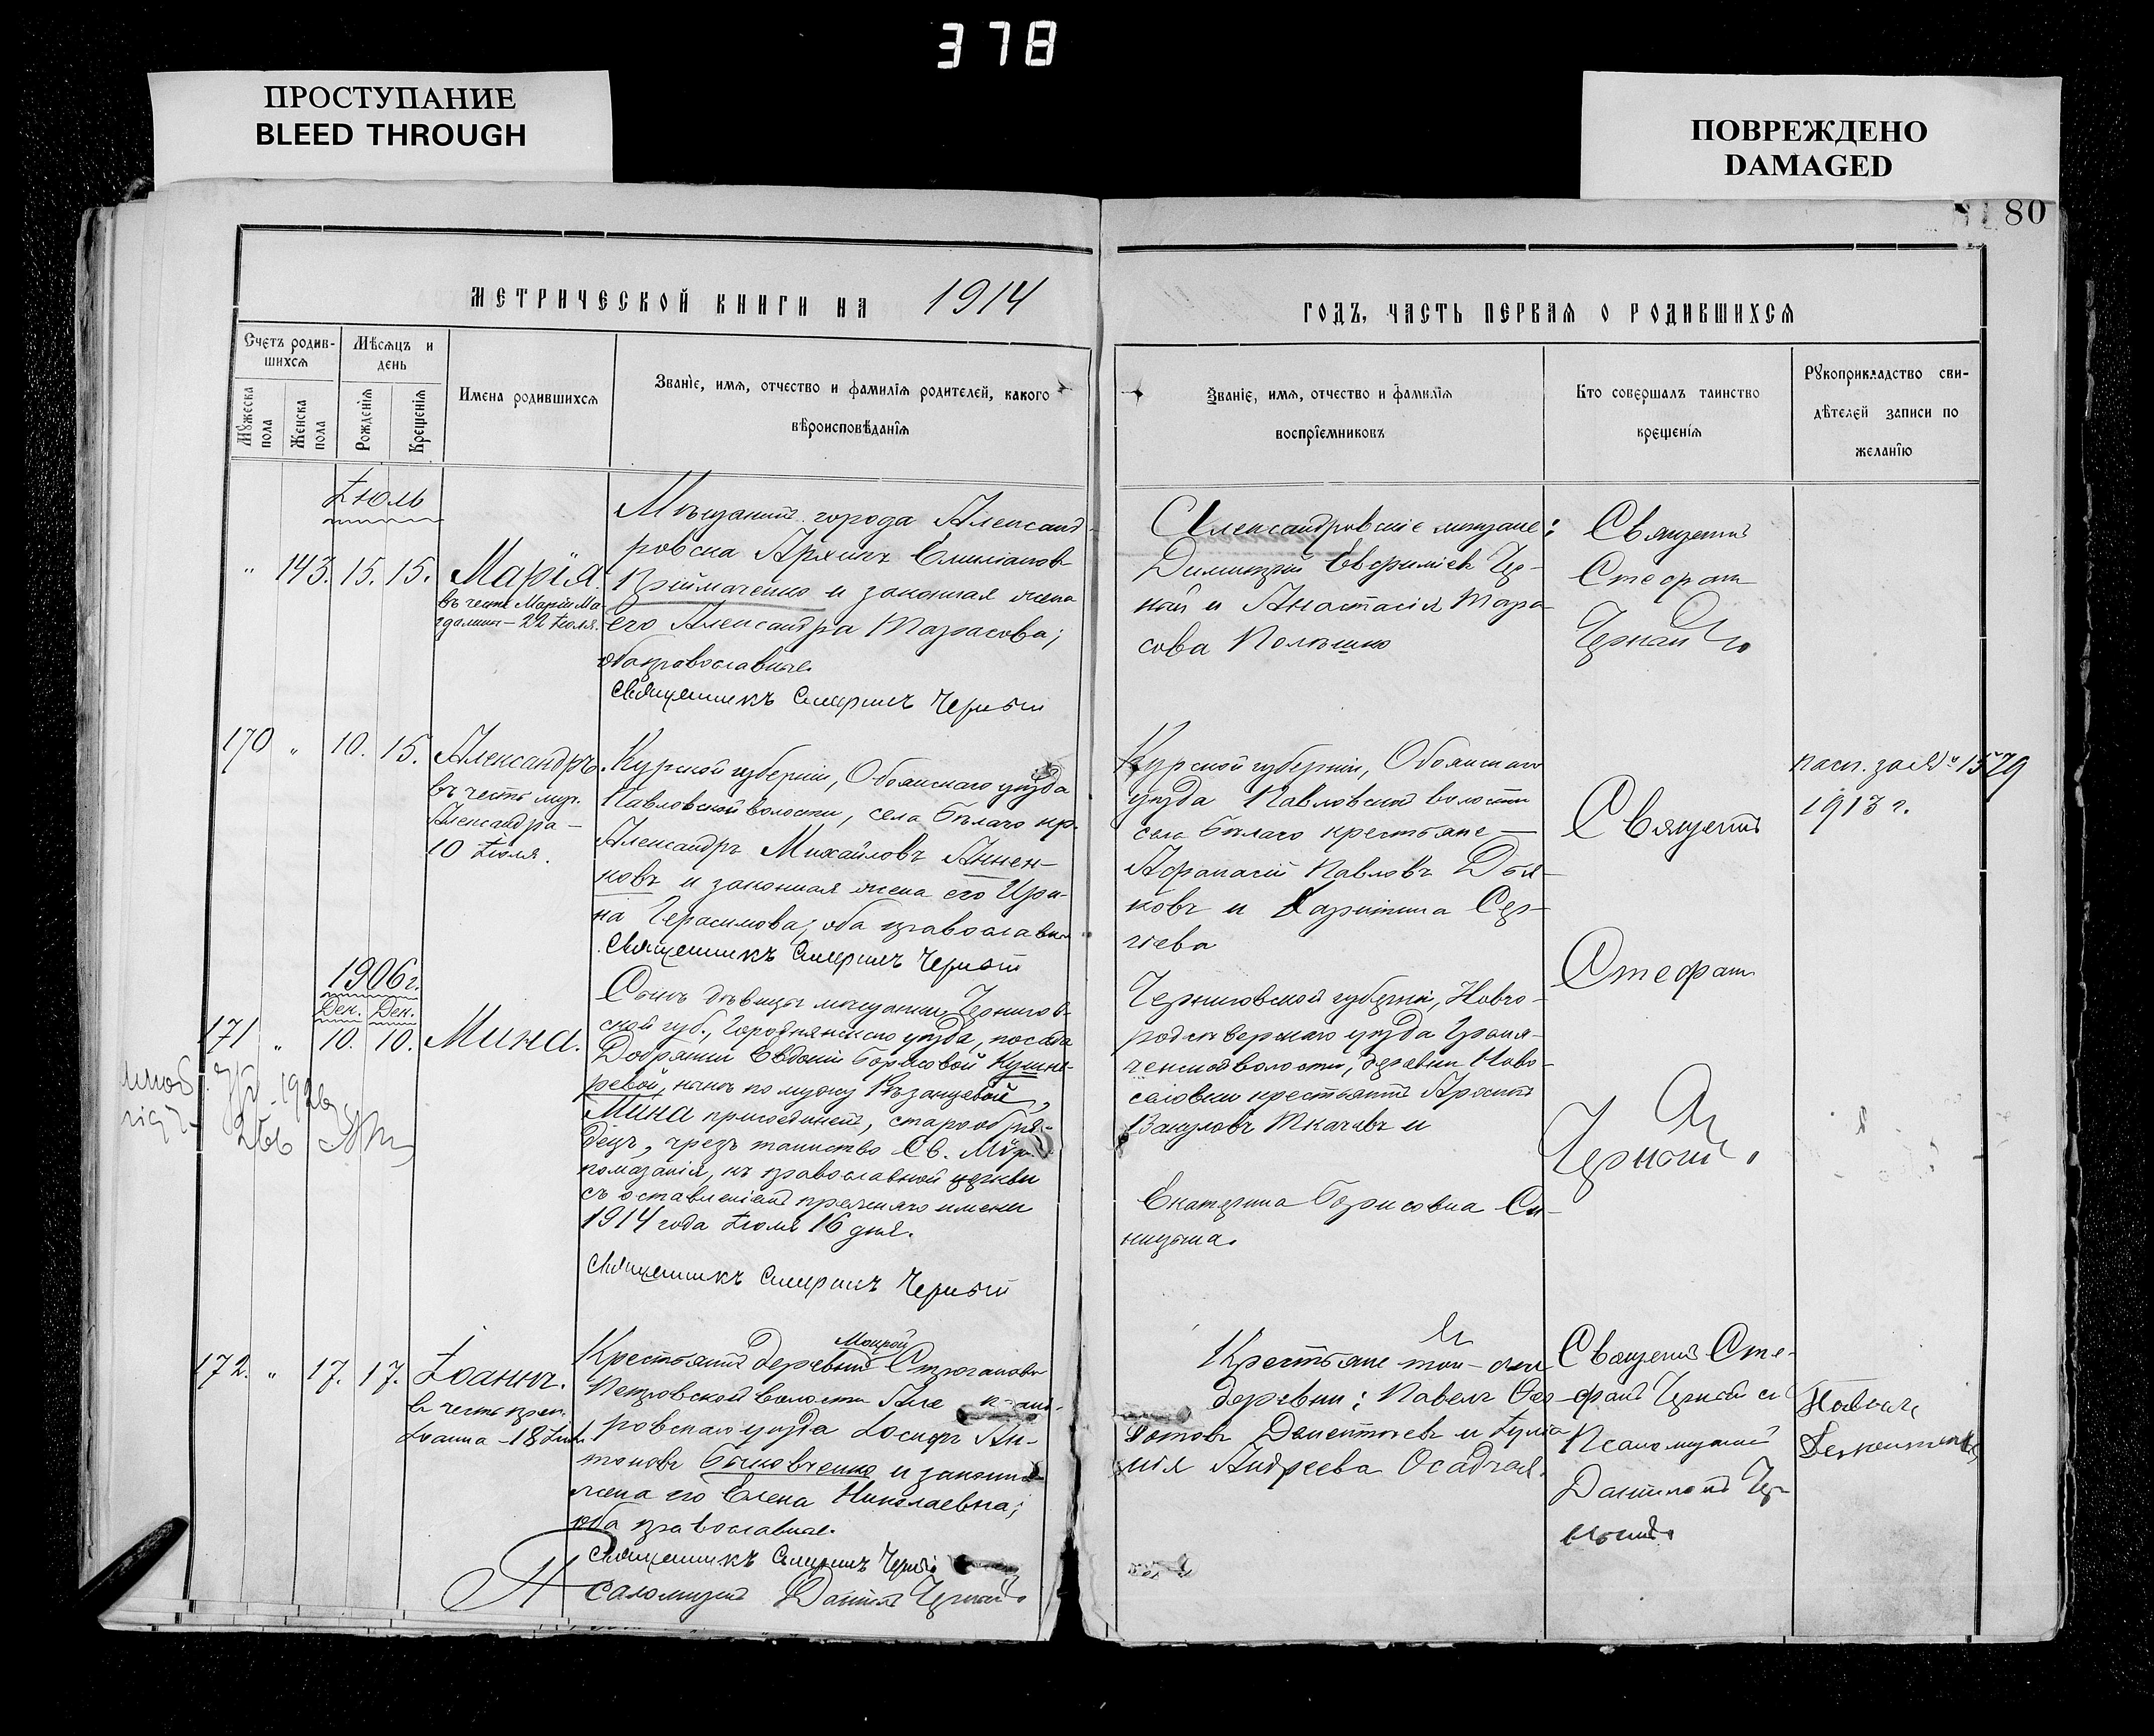 378
ПРОСТУПАНИЕ
BLEED THROUGH
ПОВРЕЖДЕНО
DAMAGED
80
МЕТРИЧЕСКОЙ КНИГИ НА 1914
ГОДЪ, ЧАСТЬ ПЕРВАЯ О РОДИВШИХСЯ
Счетъ родив-
шихся
Мѣсяцъ и
день
Мужеска
пола
Женска
пола
Рожденія
Крещенія
Имена родившихся
Званіе, имя, отчество и фамилія родителей, какого
вѣроисповѣданія
Званіе, имя, отчество и фамилія
воспріемниковъ
Кто совершалъ таинство
крещенія
Рукоприкладство сви-
дѣтелей записи по
желанію
Іюль
" 143. 15. 15. Марія.
въ честь Маріи Ма-
гдалины - 22 Іюля.
Мѣщанинъ города Александ-
ровска Архипъ Емиліановъ
Приймаченко и законная жена
его Александра Тарасова;
оба православные.
Священникъ Стефанъ Черный
Александровскіе мѣщане:
Димитрій Евфиміевъ Чер-
ный и Анастасія Тара-
сова
Священникъ
Стефанъ
Черный
170 " 10. 15. Александръ.
въ честь муч.
Александра -
10 Іюля.
Курской губерніи, Обоянскаго уѣзда
Павловской волости, села Бѣлаго кр.
Александръ Михайловъ Аннен-
ковъ и законная жена его Ири-
на Герасимова; оба православные
Священникъ Стефанъ Черный
Курской губерніи, Обоянскаго
уѣзда Павловской волости
села Бѣлаго крестьяне -
Афанасій Павловъ Дья-
ковъ и Харитина Сер-
гіева
Священникъ
Стефанъ
Черный.
пасп. за № 1579
1913 г.
1906 г.
Дек. Дек.
171 " 10. 10. Мина.
1926
Сынъ дѣвицы мѣщанки Чернигов-
ской губ., Городнянскаго уѣзда, посада
Добрянки Евдокіи Борисовой Кушне-
ревой, нынѣ по мужу
Мина присоединенъ, старообря-
децъ, чрезъ таинство Св. Мѵро-
помазанія, къ православной церкви
съ оставленіемъ прежняго имени
1914 года Іюля 16 дня.
Священникъ Стефанъ Черный
Черниговской губерніи, Новго-
родсѣверскаго уѣзда
волости, деревни Ново-
селовки крестьянинъ
Вакуловъ Ткачевъ и
Екатерина Борисовна Си-
ницына.
172. " 17. 17. Іоаннъ.
въ честь преп.
Іоанна - 18 Іюля
Крестьянинъ деревни Мокрой Строгановки
Петровской волости Алек
ровскаго уѣзда Іосифъ Ан-
тоновъ Бычковченко и законная
жена его Елена Николаевна;
оба православные.
Священникъ Стефанъ Черный
Псаломщикъ Даніилъ Черный.
Крестьяне той-же
деревни: Павелъ Ѳео-
Дементьевъ и Іулiа-
нія Андреева Осадчая.
Священникъ Сте-
фанъ Черный и
Псаломщикъ
Даніилъ Чер-
ный.